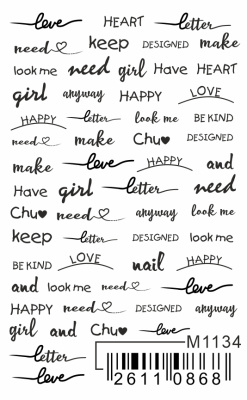 love HEART letter
need keep DESIGNED make
look me need girl Have HEART
girl anyway HAPPY LOVE
HAPPY letter look me BE KIND
need make Chu♥ DESIGNED
make love HAPPY and
Have girl letter need
Chu♥ need anyway look me
keep letter DESIGNED look me
BE KIND LOVE nail HAPPY
and look me need love
HAPPY need DESIGNED anyway
girl and Chu♥ love
letter M1134
love 2611 0868